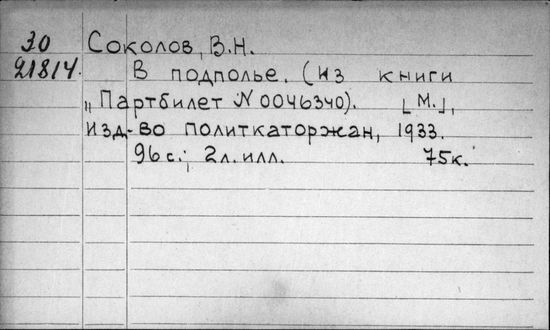 30 Соколов, В.Н.
21814. В подполье. (из книги
„Партбилет N 0046340). [М.],
изд-во политкаторжан, 1933.
96 с.; 2 л. илл. 75к.